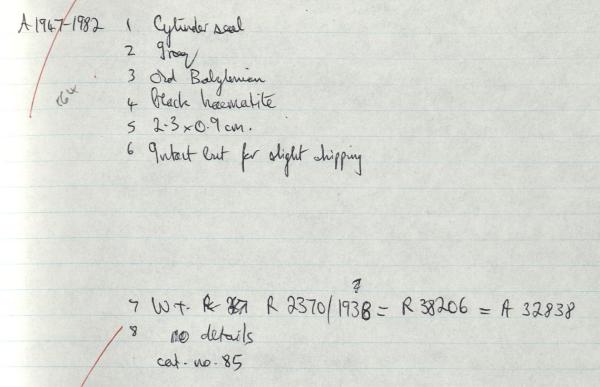 A 1947-1982 1 Cylinder seal
2 Iraq
3 Old Babylonian
4 black haematite
5 2.3 x 0.9 cm.
6 Intact but for slight chipping
7 Wt. R 2370/1938 ? = R 38206 = A 32838
8 no details
cat. no. 85